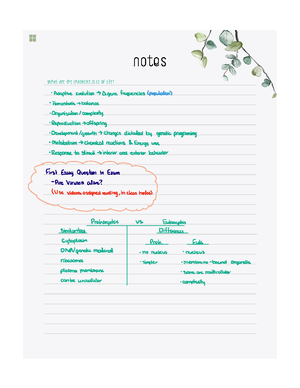 notes
WHAT ARE THE PROPERTIES OF LIFE?
• Adaptive evolution → Δ gene frequencies (population)
• Homeostasis → balance
• Organization/complexity
• Reproduction → offspring
• Development/growth → changes dictated by genetic programming
• Metabolism → chemical reactions & Energy use
• Response to stimuli → interior and exterior behavior
First Essay Question in Exam
- Are Viruses alive?
(Use videos, assigned reading, in class notes)
Prokaryotes vs Eukaryotes
Similarities Differences
Cytoplasm Prok. Euk.
DNA/genetic material • no nucleus • nucleus
ribosomes • simpler • membrane-bound organelle
plasma membrane • some are multicellular
can be unicellular • complexity